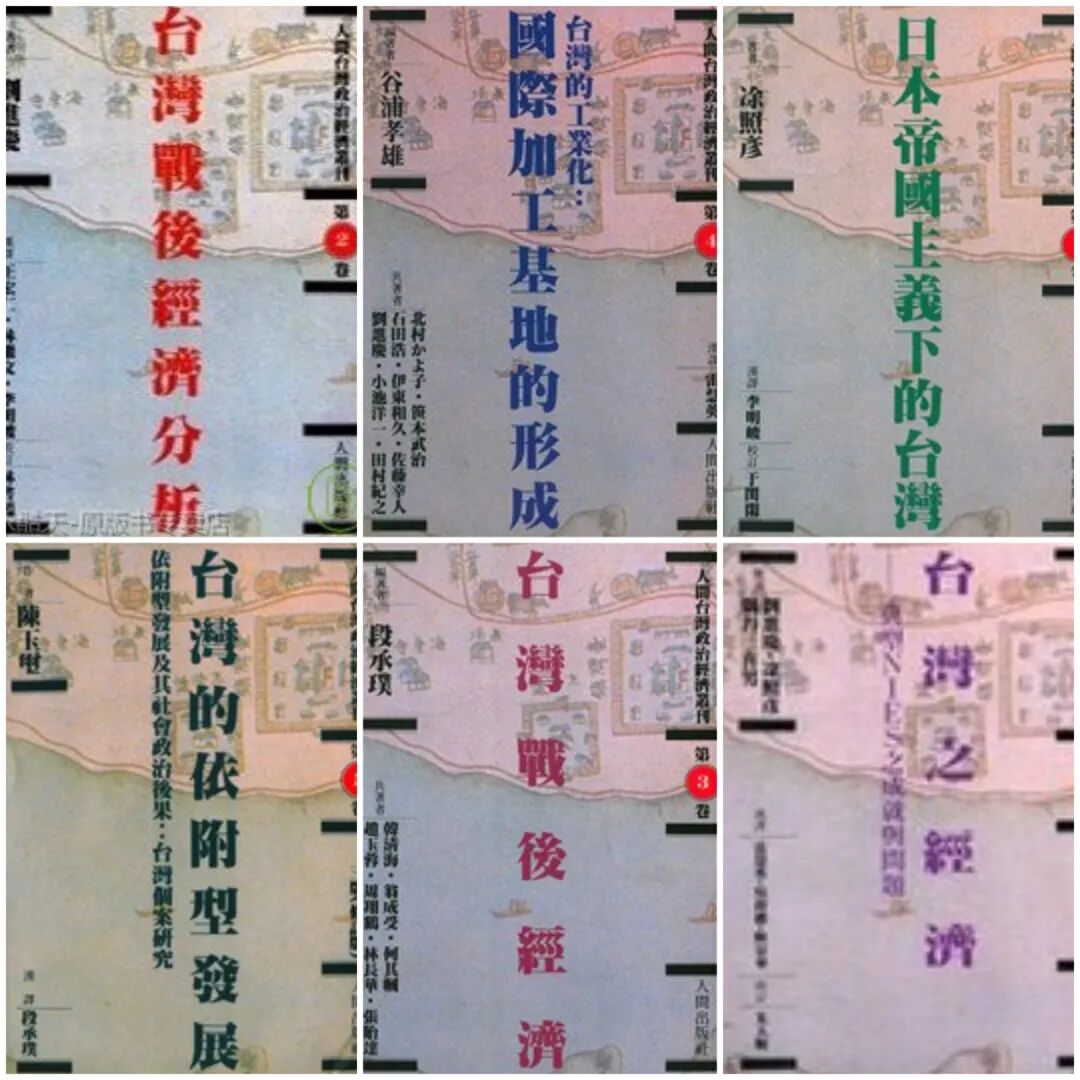 人間台灣政治經濟叢刊
第
2
卷
台灣戰後經濟分析
人間出版社
原版书
店
人間台灣政治經濟叢刊
第
4
卷
台灣的工業化：
國際加工基地的形成
編著者
谷浦孝雄
共著者
北村かよ子・笹本武治
石田浩・伊東和久・佐藤幸人
劉進慶・小池洋一・田村紀之
人間出版社
日本帝國主義下的台灣
著者
凃照彥
漢譯
李明峻
校訂
台灣的依附型發展
依附型發展及其社會政治後果：台灣個案研究
陳玉璽
漢譯
段承璞
人間台灣政治經濟叢刊
第
3
卷
台灣戰後經濟
編著者
段承璞
共著者
韓清海・翁成受・柯其
趙玉蓉・周翔鶴・林長華・張貽達
人間出版社
台灣之經濟
典型NIES之成就與問題